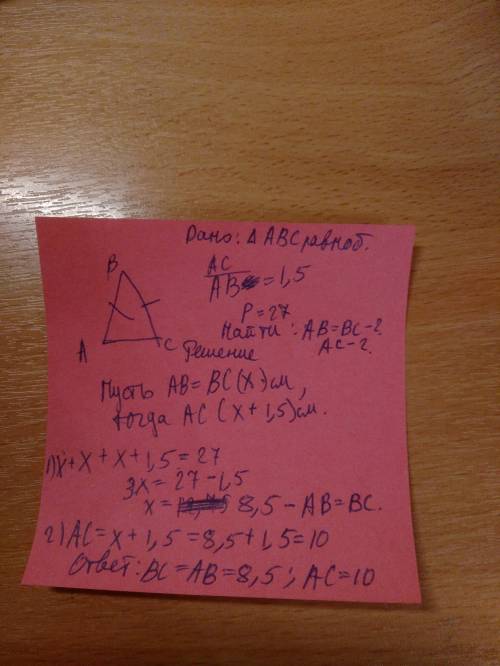 Дано: Δ ABC равноб.
AC
AB = 1,5
P = 27
Найти: AB=BC-?
AC-?
B
A
C
Решение
Пусть AB=BC (x)см,
тогда AC (x+1,5)см.
1) x+x+x+1,5=27
3x=27-1,5
x= 8,5-AB=BC.
2) AC=x+1,5=8,5+1,5=10
Ответ: BC=AB=8,5; AC=10